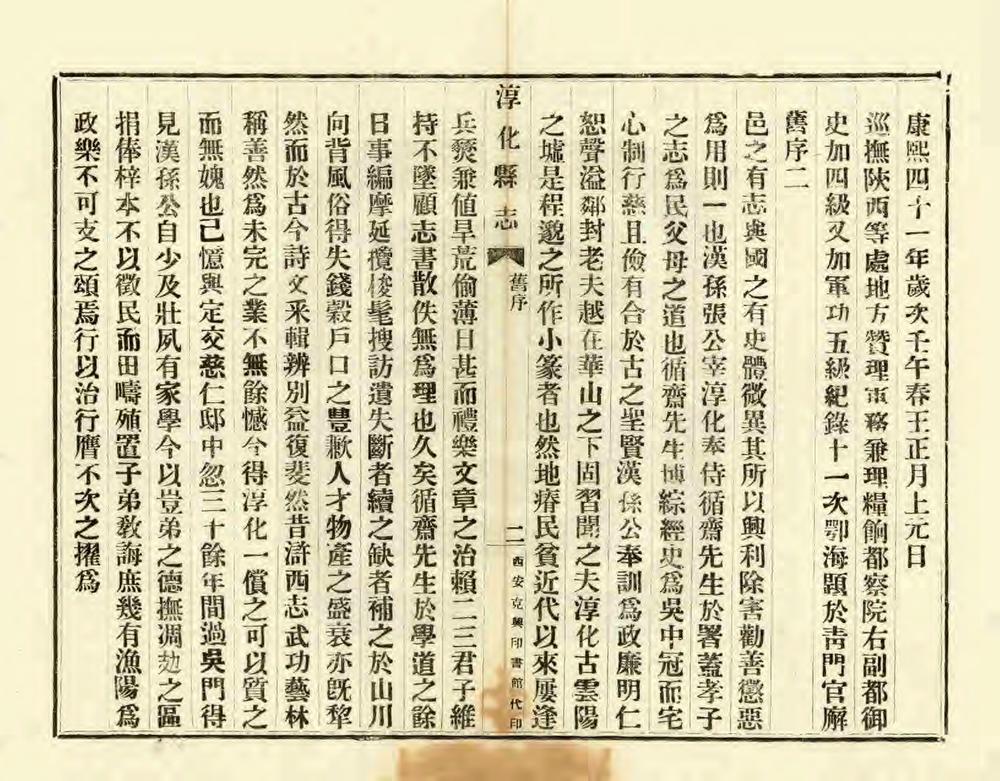 康熙四十一年歲次壬午春王正月上元日
巡撫陝西等處地方贊理軍務兼理糧餉都察院右副都御
史加四級又加軍功五級紀錄十一次鄂海題於靑門官廨
舊序二
邑之有志與國之有史體微異其所以興利除害勸善懲惡
爲用則一也漢孫張公宰淳化奉侍循齋先生於署蓋孝子
之志爲民父母之道也循齋先生博綜經史爲吳中冠而宅
心制行慈且儉有合於古之聖賢漢孫公奉訓爲政廉明仁
恕聲溢鄰封老夫越在華山之下固習聞之夫淳化古雲陽
之墟是程邈之所作小篆者也然地瘠民貧近代以來屢逢
淳化縣志
舊序
二
西安克興印書館代印
兵燹兼值旱荒偷薄日甚而禮樂文章之治賴二三君子維
持不墜顧志書散佚無爲理也久矣循齋先生於學道之餘
日事編摩延攬俊髦搜訪遺失斷者續之缺者補之於山川
向背風俗得失錢穀戶口之豐歉人才物產之盛衰亦旣犂
然而於古今詩文釆輯辨別益復斐然昔滸西志武功藝林
稱善然爲未完之業不無餘憾今得淳化一償之可以質之
而無媿也已憶與定交慈仁邸中忽三十餘年間過吳門得
見漢孫公自少及壯夙有家學今以豈弟之德撫凋攰之區
捐俸梓本不以徵民而田疇殖置子弟敎誨庶幾有漁陽爲
政樂不可支之頌焉行以治行膺不次之擢爲